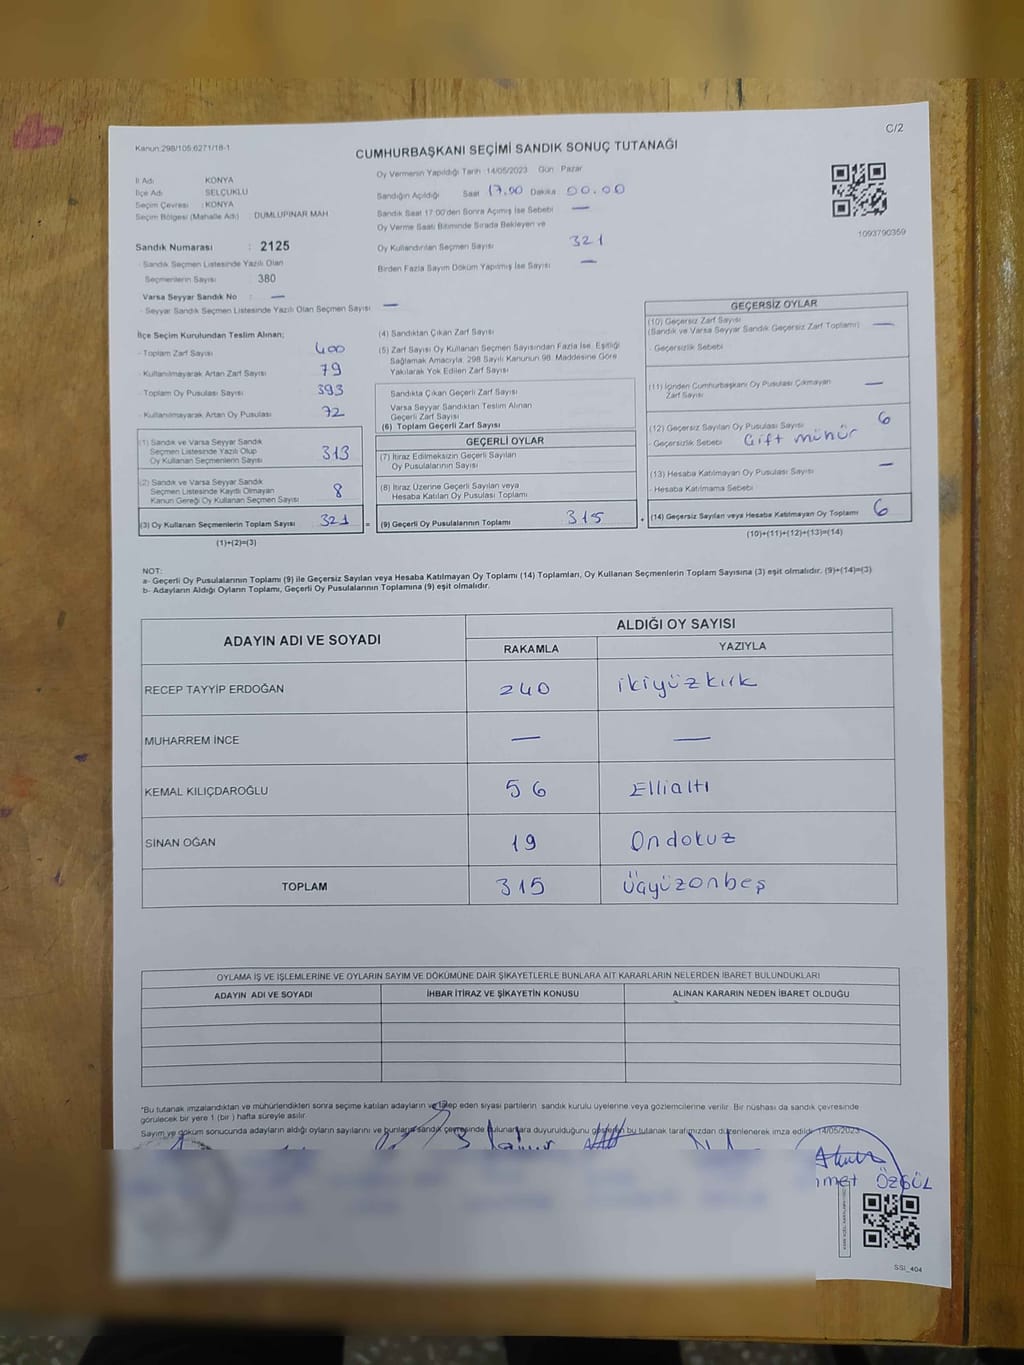 C/2
Kanun:298/105;6271/18-1
CUMHURBAŞKANI SEÇİMİ SANDIK SONUÇ TUTANAĞI
İl Adı KONYA
İlçe Adı SELÇUKLU
Seçim Çevresi : KONYA
Seçim Bölgesi (Mahalle Adı) : DUMLUPINAR MAH
Sandık Numarası : 2125
- Sandık Seçmen Listesinde Yazılı Olan
Seçmenlerin Sayısı : 380
Varsa Seyyar Sandık No : —
- Seyyar Sandık Seçmen Listesinde Yazılı Olan Seçmen Sayısı : —
Oy Vermenin Yapıldığı Tarih :14/05/2023 Gün : Pazar
Sandığın Açıldığı Saat 17.00 Dakika 00.00
Sandık Saat 17:00'den Sonra Açılmış İse Sebebi —
Oy Verme Saati Bitiminde Sırada Bekleyen ve
Oy Kullandırılan Seçmen Sayısı 321
Birden Fazla Sayım Döküm Yapılmış İse Sayısı —
1093790359
İlçe Seçim Kurulundan Teslim Alınan;
- Toplam Zarf Sayısı 400
- Kullanılmayarak Artan Zarf Sayısı 79
- Toplam Oy Pusulası Sayısı 393
- Kullanılmayarak Artan Oy Pusulası 72
(1) Sandık ve Varsa Seyyar Sandık
Seçmen Listesinde Yazılı Olup
Oy Kullanan Seçmenlerin Sayısı 313
(2) Sandık ve Varsa Seyyar Sandık
Seçmen Listesinde Kayıtlı Olmayan
Kanun Gereği Oy Kullanan Seçmen Sayısı 8
(3) Oy Kullanan Seçmenlerin Toplam Sayısı 321 =
(1)+(2)=(3)
(4) Sandıktan Çıkan Zarf Sayısı
(5) Zarf Sayısı Oy Kullanan Seçmen Sayısından Fazla İse, Eşitliği
Sağlamak Amacıyla; 298 Sayılı Kanunun 98. Maddesine Göre
Yakılarak Yok Edilen Zarf Sayısı
Sandıkta Çıkan Geçerli Zarf Sayısı
Varsa Seyyar Sandıktan Teslim Alınan
Geçerli Zarf Sayısı
(6) Toplam Geçerli Zarf Sayısı
GEÇERLİ OYLAR
(7) İtiraz Edilmeksizin Geçerli Sayılan
Oy Pusulalarının Sayısı
(8) İtiraz Üzerine Geçerli Sayılan veya
Hesaba Katılan Oy Pusulası Toplamı
(9) Geçerli Oy Pusulalarının Toplamı 315 +
GEÇERSİZ OYLAR
(10) Geçersiz Zarf Sayısı
(Sandık ve Varsa Seyyar Sandık Geçersiz Zarf Toplamı) —
- Geçersizlik Sebebi
(11) İçinden Cumhurbaşkanı Oy Pusulası Çıkmayan
Zarf Sayısı —
(12) Geçersiz Sayılan Oy Pusulası Sayısı 6
- Geçersizlik Sebebi Çift mühür
(13) Hesaba Katılmayan Oy Pusulası Sayısı —
- Hesaba Katılmama Sebebi
(14) Geçersiz Sayılan veya Hesaba Katılmayan Oy Toplamı 6
(10)+(11)+(12)+(13)=(14)
NOT:
a- Geçerli Oy Pusulalarının Toplamı (9) ile Geçersiz Sayılan veya Hesaba Katılmayan Oy Toplamı (14) Toplamları, Oy Kullanan Seçmenlerin Toplam Sayısına (3) eşit olmalıdır. (9)+(14)=(3)
b- Adayların Aldığı Oyların Toplamı, Geçerli Oy Pusulalarının Toplamına (9) eşit olmalıdır.
ADAYIN ADI VE SOYADI ALDIĞI OY SAYISI
RAKAMLA YAZIYLA
RECEP TAYYİP ERDOĞAN 240 ikiyüzkırk
MUHARREM İNCE — —
KEMAL KILIÇDAROĞLU 56 Ellialtı
SİNAN OĞAN 19 Ondokuz
TOPLAM 315 Üçyüzonbeş
OYLAMA İŞ VE İŞLEMLERİNE VE OYLARIN SAYIM VE DÖKÜMÜNE DAİR ŞİKAYETLERLE BUNLARA AİT KARARLARIN NELERDEN İBARET BULUNDUKLARI
ADAYIN ADI VE SOYADI İHBAR İTİRAZ VE ŞİKAYETİN KONUSU ALINAN KARARIN NEDEN İBARET OLDUĞU
*Bu tutanak imzalandıktan ve mühürlendikten sonra seçime katılan adayların ve talep eden siyasi partilerin sandık kurulu üyelerine veya gözlemcilerine verilir. Bir nüshası da sandık çevresinde
görülecek bir yere 1 (bir ) hafta süreyle asılır.
Sayım ve döküm sonucunda adayların aldığı oyların sayılarını ve bunların sandık çevresinde bulunanlara duyurulduğunu gösteren bu tutanak tarafımızdan düzenlenerek imza edildi. 14/05/2023
ÖZGÜL
SSI_404